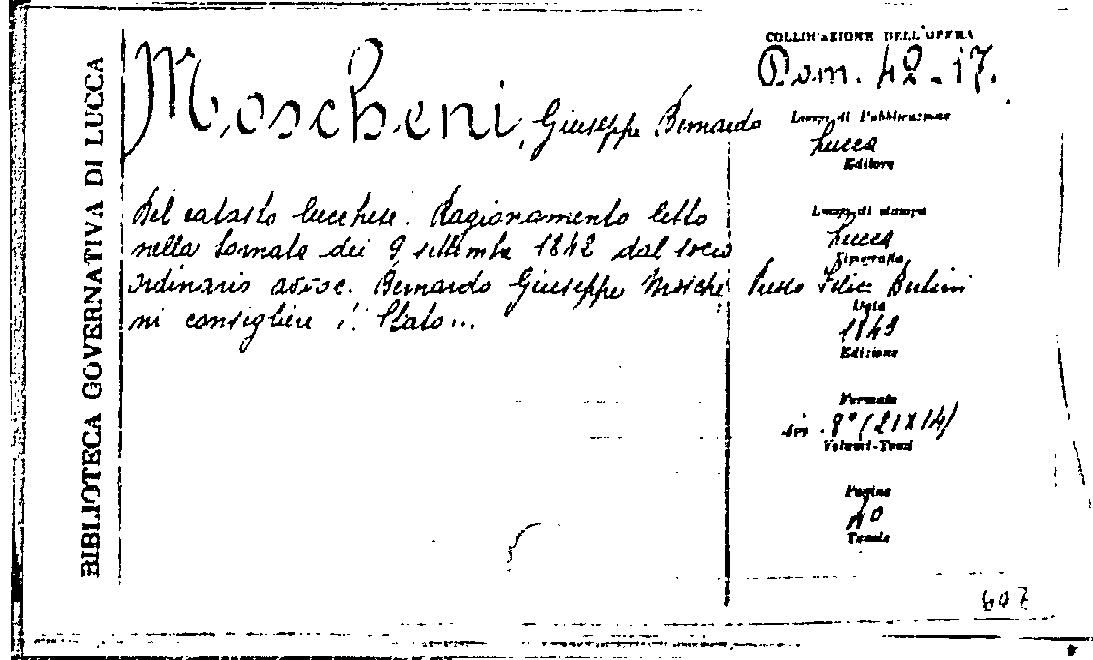 BIBLIOTECA GOVERNATIVA DI LUCCA
COLLOCAZIONE DELL'OPERA
Dom. 42-17.
Moscheni, Giuseppe Bernardo
Luogo di Pubblicazione
Lucca
Editore
Del catasto lucchese. Ragionamento letto
nella tornata dei 9 settembre 1842 dal socio
ordinario avvoc. Bernardo Giuseppe Mosche
ni consigliere Stato...
Luogo di stampa
Lucca
Tipografia
Presso Felice Bertini
Data
1843
Edizione
Formato
in 8° (21x14)
Volumi-Tomi
Pagine
40
Tavole
607